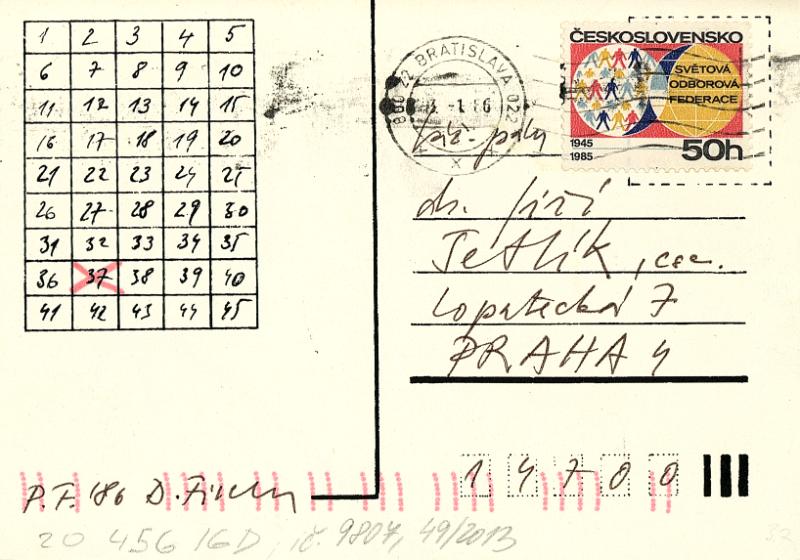 1 2 3 4 5
6 7 8 9 10
11 12 13 14 15
16 17 18 19 20
21 22 23 24 25
26 27 28 29 30
31 32 33 34 35
36 37 38 39 40
41 42 43 44 45
P.F. '86 D. Fischer
20 456 IGD, ič. 9807, 49/2013
BRATISLAVA 022
ČESKOSLOVENSKO
SVĚTOVÁ
ODBOROVÁ
FEDERACE
1945
1985
50h
dr. Jiří
Šetlík, csc.
Lopatecká 7
PRAHA 4
14700
32